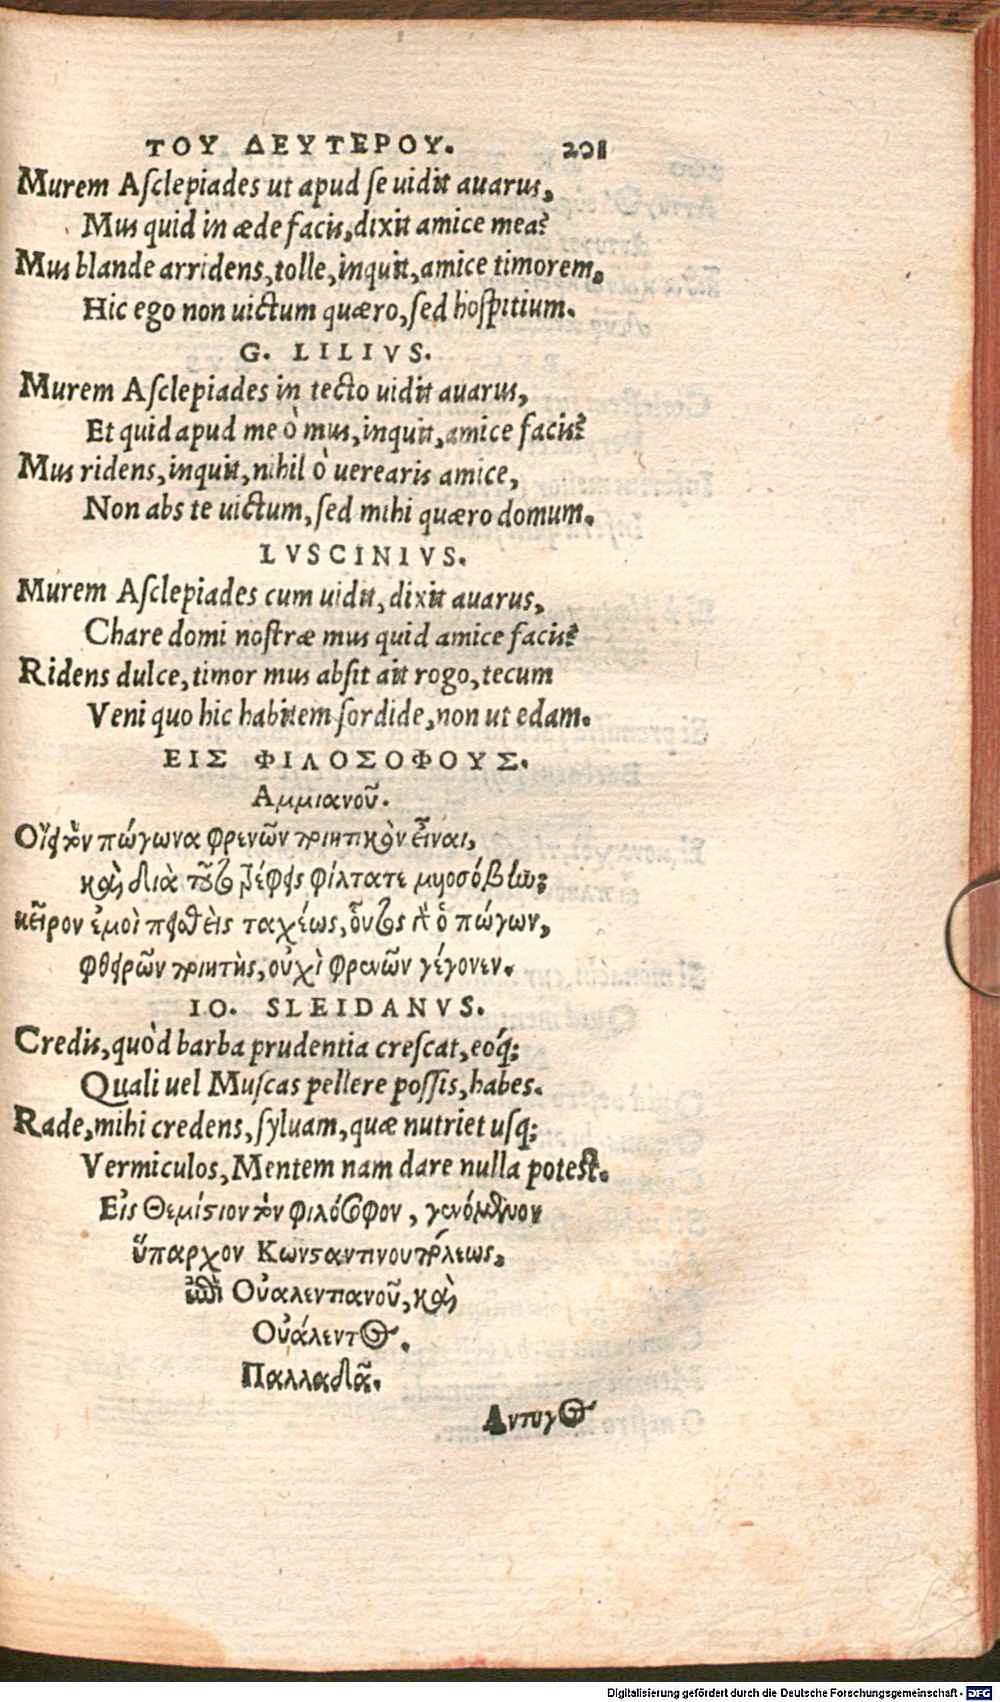 ΤΟΥ ΔΕΥΤΕΡΟΥ. 201
Murem Aſclepiades ut apud ſe uidit auarus,
Mus quid in æde facis, dixit amice mea?
Mus blande arridens, tolle, inquit, amice timorem,
Hic ego non uictum quæro, ſed hoſpitium.
G. LILIVS.
Murem Aſclepiades in tecto uidit auarus,
Et quid apud me ò mus, inquit, amice facis?
Mus ridens, inquit, nihil ò uerearis amice,
Non abs te uictum, ſed mihi quæro domum.
LVSCINIVS.
Murem Aſclepiades cum uidit, dixit auarus,
Chare domi noſtræ mus quid amice facis?
Ridens dulce, timor mus abſit ait rogo, tecum
Veni quo hic habitem ſordide, non ut edam.
ΕΙΣ ΦΙΛΟΣΟΦΟΥΣ.
Αμμιανοῦ.
Οἴει τὸν πώγωνα φρενῶν ποιητικὸν εἶναι,
καὶ διὰ τοῦτο τρέφεις φίλτατε μυοσόβην;
κεῖρον ἐμοὶ πειθεὶς ταχέως, οὗτος γὰρ ὁ πώγων,
φθειρῶν ποιητὴς, οὐχὶ φρενῶν γέγονεν.
IO. SLEIDANVS.
Credis, quòd barba prudentia creſcat, eóq;
Quali uel Muſcas pellere poſſis, habes.
Rade, mihi credens, ſyluam, quæ nutriet uſq;
Vermiculos, Mentem nam dare nulla poteſt.
Εἰς Θεμίστιον τὸν φιλόσοφον, γενόμενον
ὕπαρχον Κωνσταντινουπόλεως,
ἐπὶ Οὐαλεντιανοῦ, καὶ
Οὐάλεντος.
Παλλαδᾶ.
Αντυγος
Digitalisierung gefördert durch die Deutsche Forschungsgemeinschaft - DFG